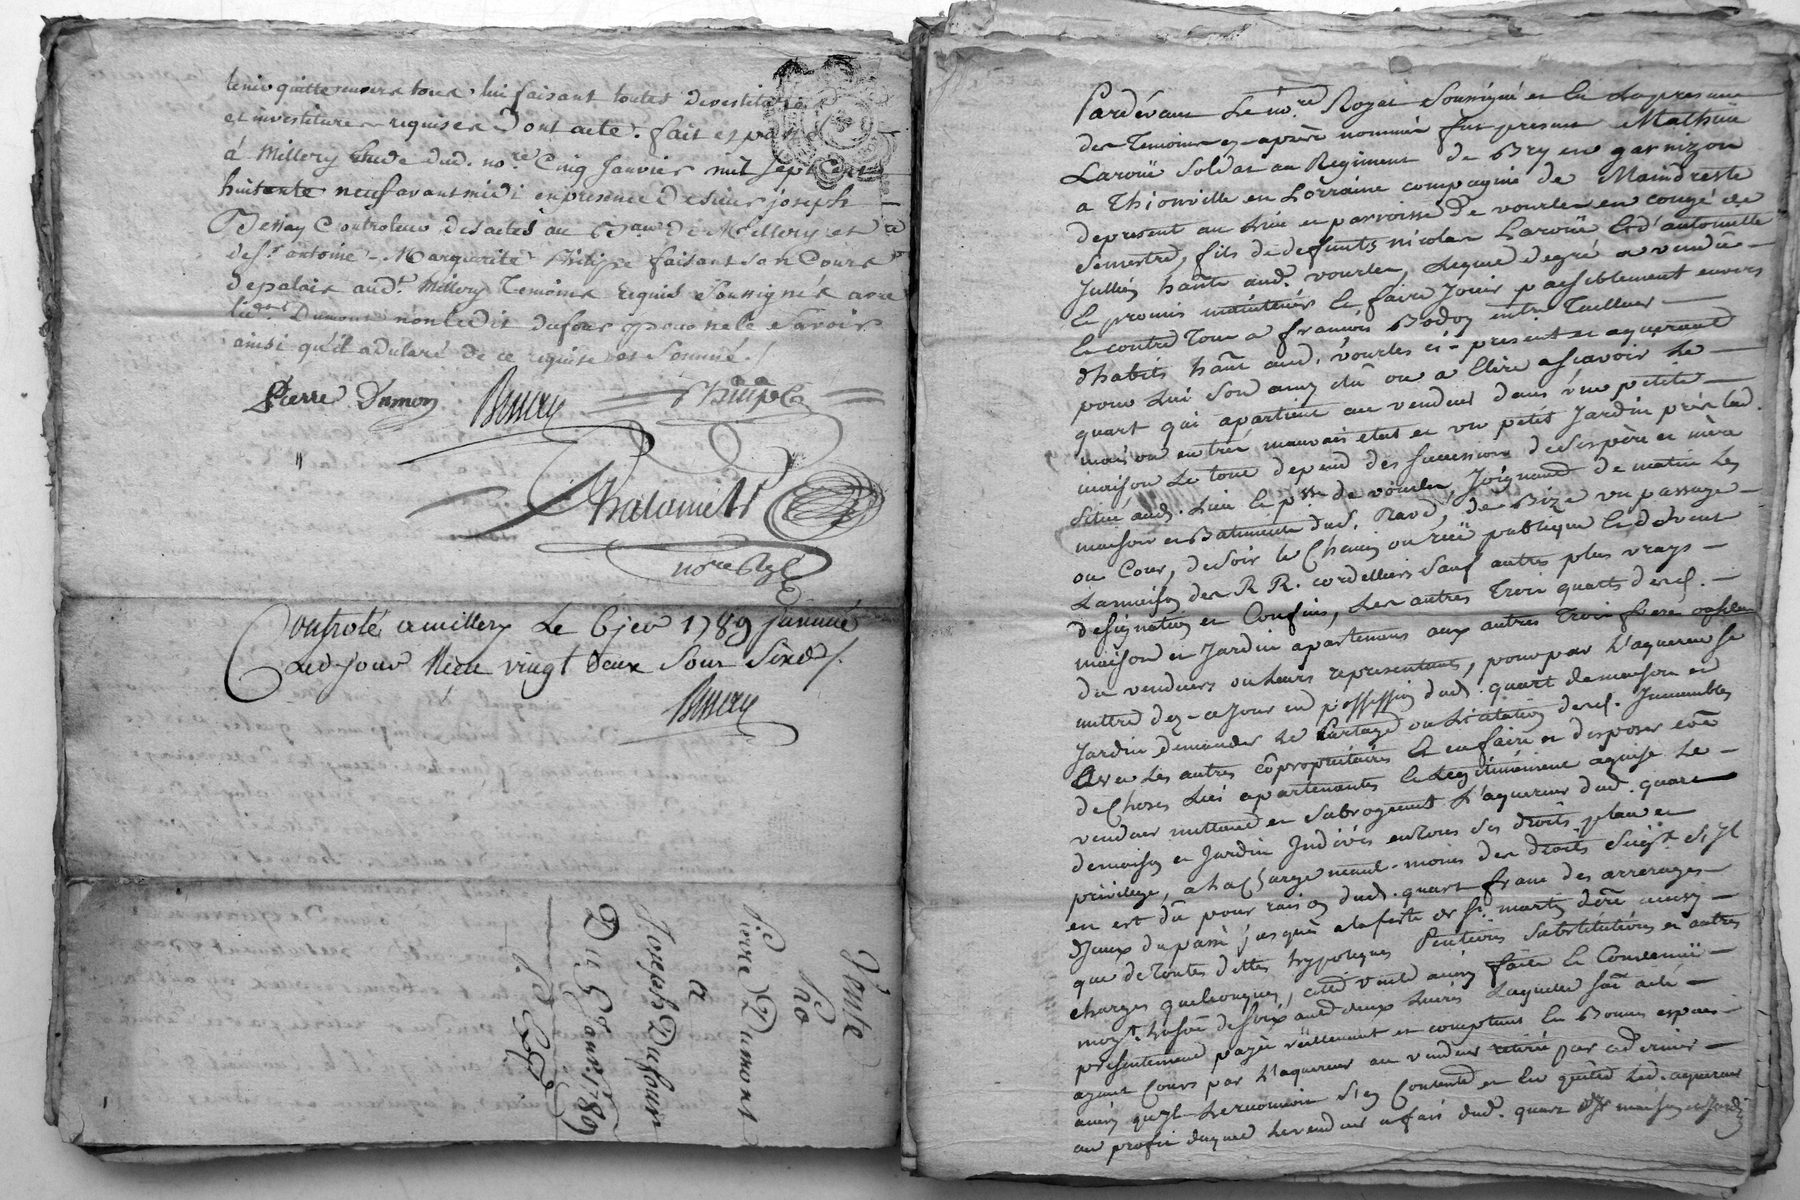 tenir quitte envers tous lui faisant toutes devestitures
et investitures requises Dont acte. fait et passé
à Millery Etude dud. nore Cinq Janvier mil sept cent
huitante neuf avant midi en presence de sieur joseph
Bessay Controleur des actes au Bau de Millery et
de sr antoine Marguerite Philipe faisant son Cours
de palais audt Millery Temoins requis Soussignés avec
led. Dumont non ledit dufour pour ne le savoir
ainsi qu'il a declaré de ce requis et Sommé ./.
Pierre Dumon
Philipe
nore Royal
Controlé a millery Le 6 jer 1789 jnsinué
led. jour Recu vingt deux sous six d /.
Vente
Par
Pierre Dumont
a
Joseph Dufour
Du 5 Janr. 1789
Pardévant Le nore Royal Soussigné et En La presence
des Temoins cy-après nommés fut present Mathieu
Laroüe Soldat au Regiment de Bry en garnizon
a Thionville en Lorraine compagnie de Maindreste
depresent au Lieu et parroisse de vourles en congé de
Semestre, fils de defunts nicolas Laroüe et d'antoinette
Jullien hante aud. vourles, Lequel degré a vendu
Et promis maintenir Et faire Jouir paisiblement envers
Et contre Tous a francois Bodoy entre Tailleur
d'habits hant aud. vourles ci-present et aquereant
pour Lui Son amy élu ou a Elire ascavoir Le
quart qui apartient au vendeur dans une petite
maison en tres mauvais etat et un petit Jardin près lad.
maison Le tout depend des successions de ses père et mère
Situé aud. Lieu et psse de vourles Joignant de matin Les
maison et Batiments dud. Ravé, de Bize un passage
ou Cour, de Soir le Chemin ou rue publique Et de vent
La maison des R R. cordelliers Sauf autres plus vrays
designation et Confins, Les autres Trois quarts desd.
maison et Jardin apartenans aux autres Trois frere
du vendeurs ou Leurs representants, pour par L'aquereur se
mettre dez-ce Jour en possession dud. quart de maison et
Jardin, demander Le Partage ou Licitation desd. Immeubles
Avec Les autres coproprietaires Et en faire et disposer coe
de Choses Lui apartenantes Et Legitimement aquise Le
vendeur mettant et subrogeant L'aquereur dud. quart
de maison et Jardin Indivis en tous ses droits place et
privilege, a La Charge neant-moins des droits Seigx. s'il
en est dû pour raison dud. quart franc des arrerages
D'yceux du passé jusques a la feste de St. martin dere ainsy
que de Toutes dettes hypoteques Pentions Substitutions et autres
charges quelconques, cette vente ainsy faite Et Convenuë
moyt. La Some de Soixante deux Livres Laquelle Some a été
présentement payée réellement et comptant En Bonnes especes
ayant Cours par L'aquereur au vendeur retirée par ce dernier
ainsy qu'il Le reconnoit S'en Contente et En quitte Led. aquereur
au profit duquel Le vendeur a fait dud. quart de maison et Jardin